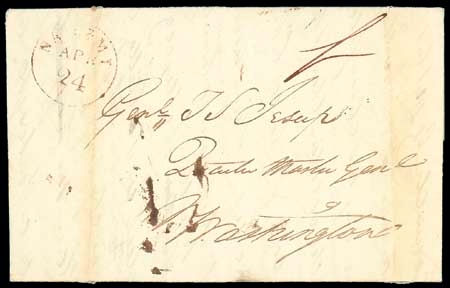 AP
24
Genl T S Jesup
Quarter Master Genl
Washington